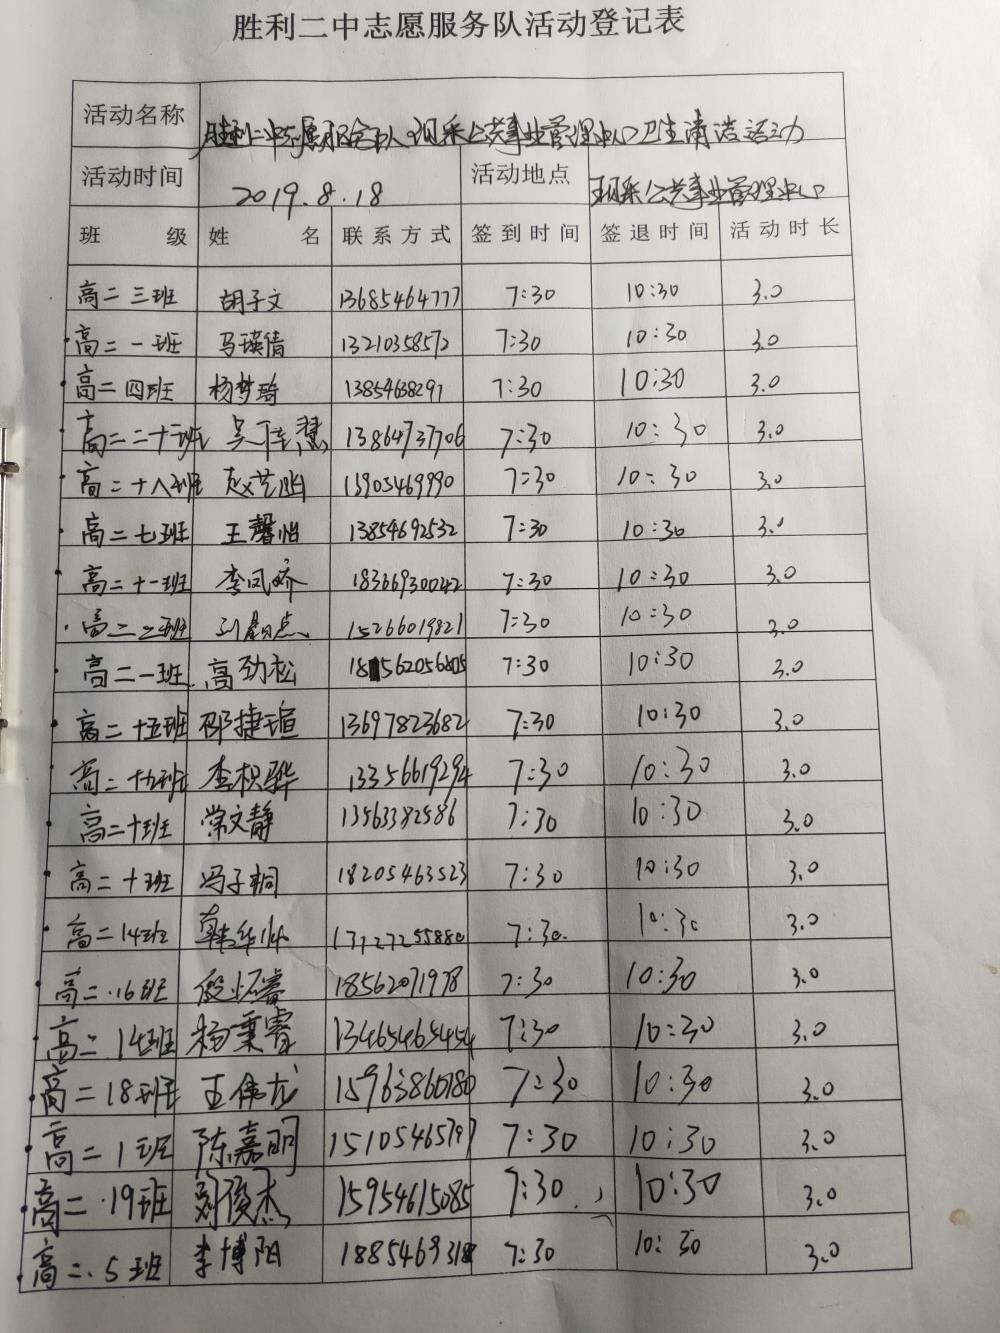 胜利二中志愿服务队活动登记表
活动名称 胜利二中志愿服务队现采公共事业管理中心卫生清洁活动
活动时间 2019.8.18 活动地点 现采公共事业管理中心
班级 姓名 联系方式 签到时间 签退时间 活动时长
高二三班 胡子文 13685464777 7:30 10:30 3.0
高二一班 马瑛倩 13210358572 7:30 10:30 3.0
高二四班 杨梦琦 13854638291 7:30 10:30 3.0
高二二十班 吴 13864737706 7:30 10:30 3.0
高二十八班 赵艺贻 15905469990 7:30 10:30 3.0
高二七班 王馨怡 13854692532 7:30 10:30 3.0
高二十一班 李凤娇 18366930042 7:30 10:30 3.0
高二二班 15266019821 7:30 10:30 3.0
高二一班 高劲松 7:30 10:30 3.0
高二十五班 邵捷瑄 13697823682 7:30 10:30 3.0
高二十九班 李枳骅 13356619294 7:30 10:30 3.0
高二十班 常文静 13563382586 7:30 10:30 3.0
高二十班 冯子桐 18205463523 7:30 10:30 3.0
高二14班 韩华 13727255880 7:30. 10:30 3.0
高二.16班 殷怀睿 18562071978 7:30 10:30 3.0
高二.14班 杨秉睿 13465465454 7:30 10:30 3.0
高二18班 王伟龙 15963860780 7:30 10:30 3.0
高二1班 陈嘉明 15105465797 7:30 10:30 3.0
高二.19班 刘俊杰 15954615085 7:30 10:30 3.0
高二.5班 李博阳 7:30 10:30 3.0